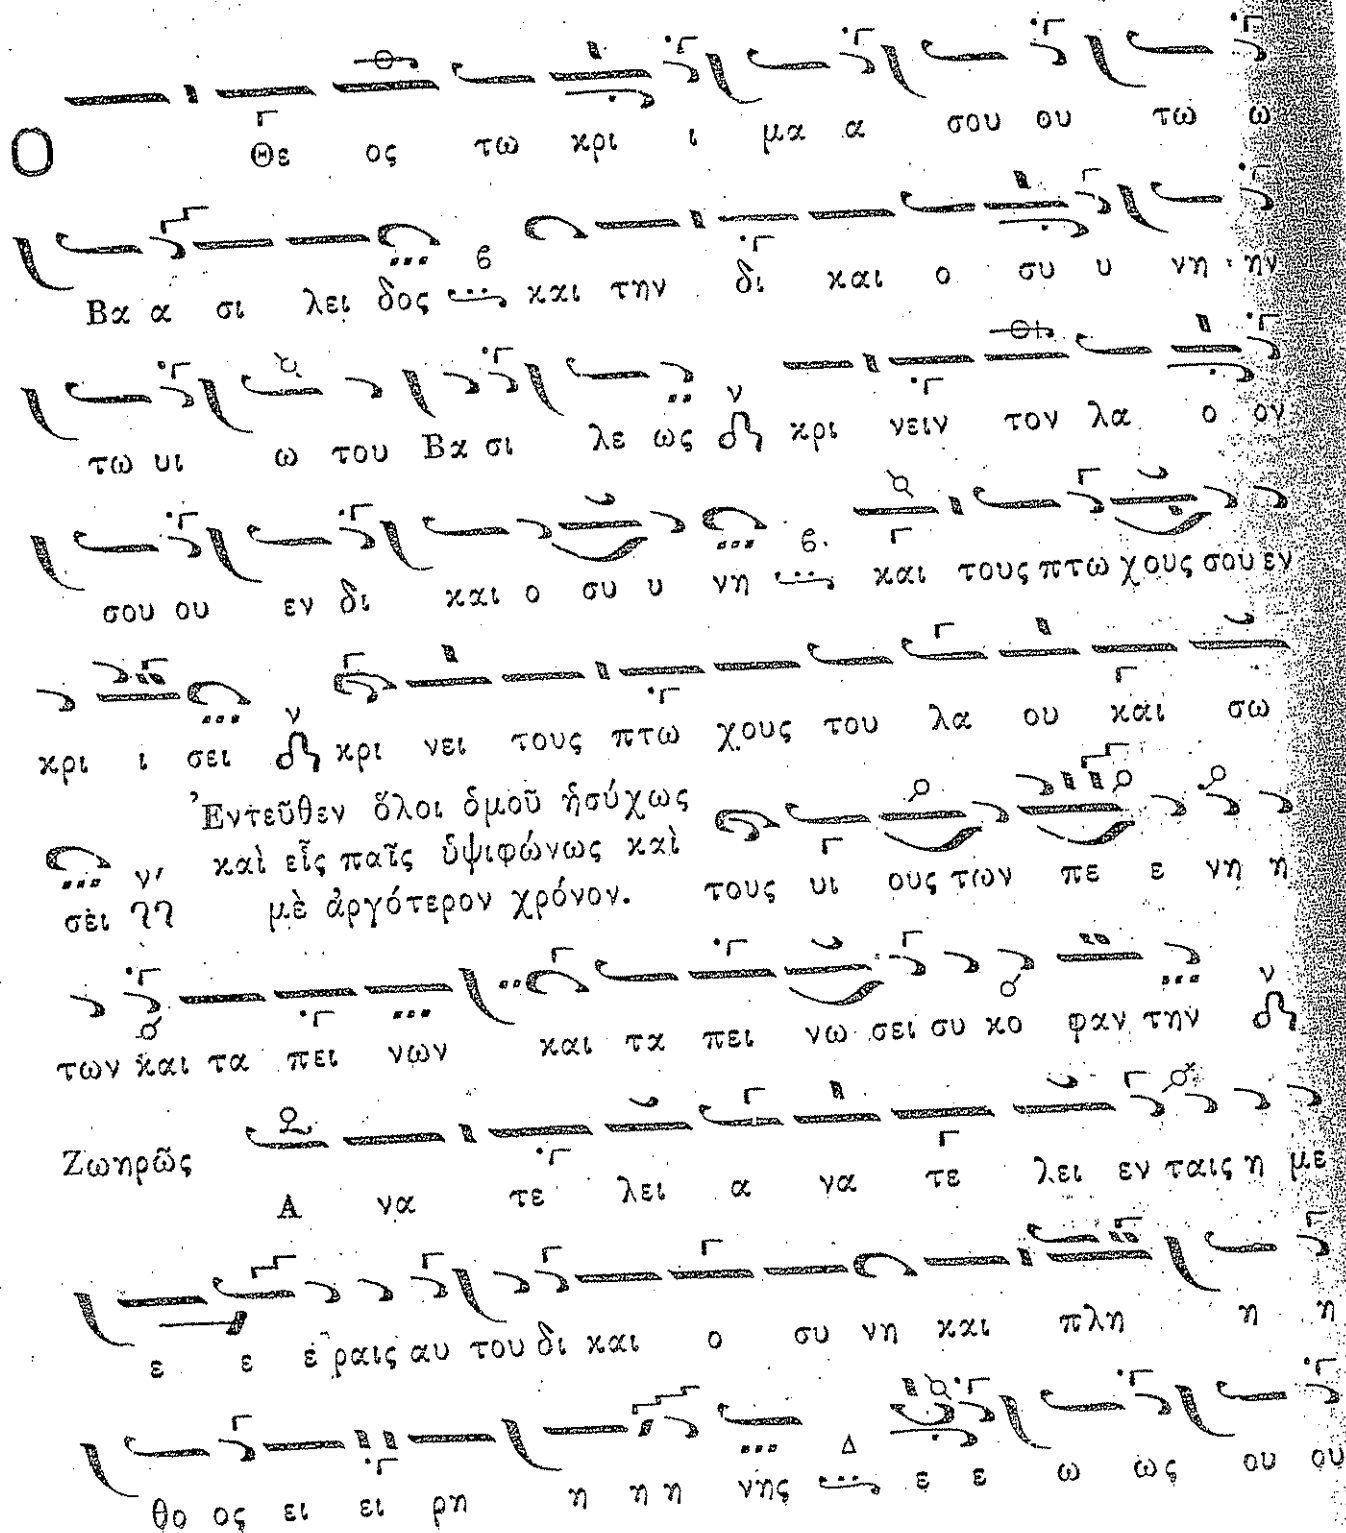 Ο Θε ος τω κρι ι μα α σου ου τω ω
Βα α σι λει δος 6 και την δι και ο συ υ νη ην
τω υι ω του Βα σι λε ως ν κρι νειν τον λα ο ον
σου ου εν δι και ο συ υ νη 6. και τους πτω χους σου εν
κρι ι σει ν κρι νει τους πτω χους του λα ου και σω
σει ν' Ἐντεῦθεν ὅλοι ὁμοῦ ἡσύχως
καὶ εἷς παῖς ὑψιφώνως καὶ
μὲ ἀργότερον χρόνον. τους υι ους των πε ε νη η
των και τα πει νων και τα πει νω σει συ κο φαν την ν
Ζωηρῶς Α να τε λει α να τε λει εν ταις η με
ε ε ε ραις αυ του δι και ο συ νη και πλη η η
θο ος ει ει ρη η η η νης Δ ε ε ω ως ου ου